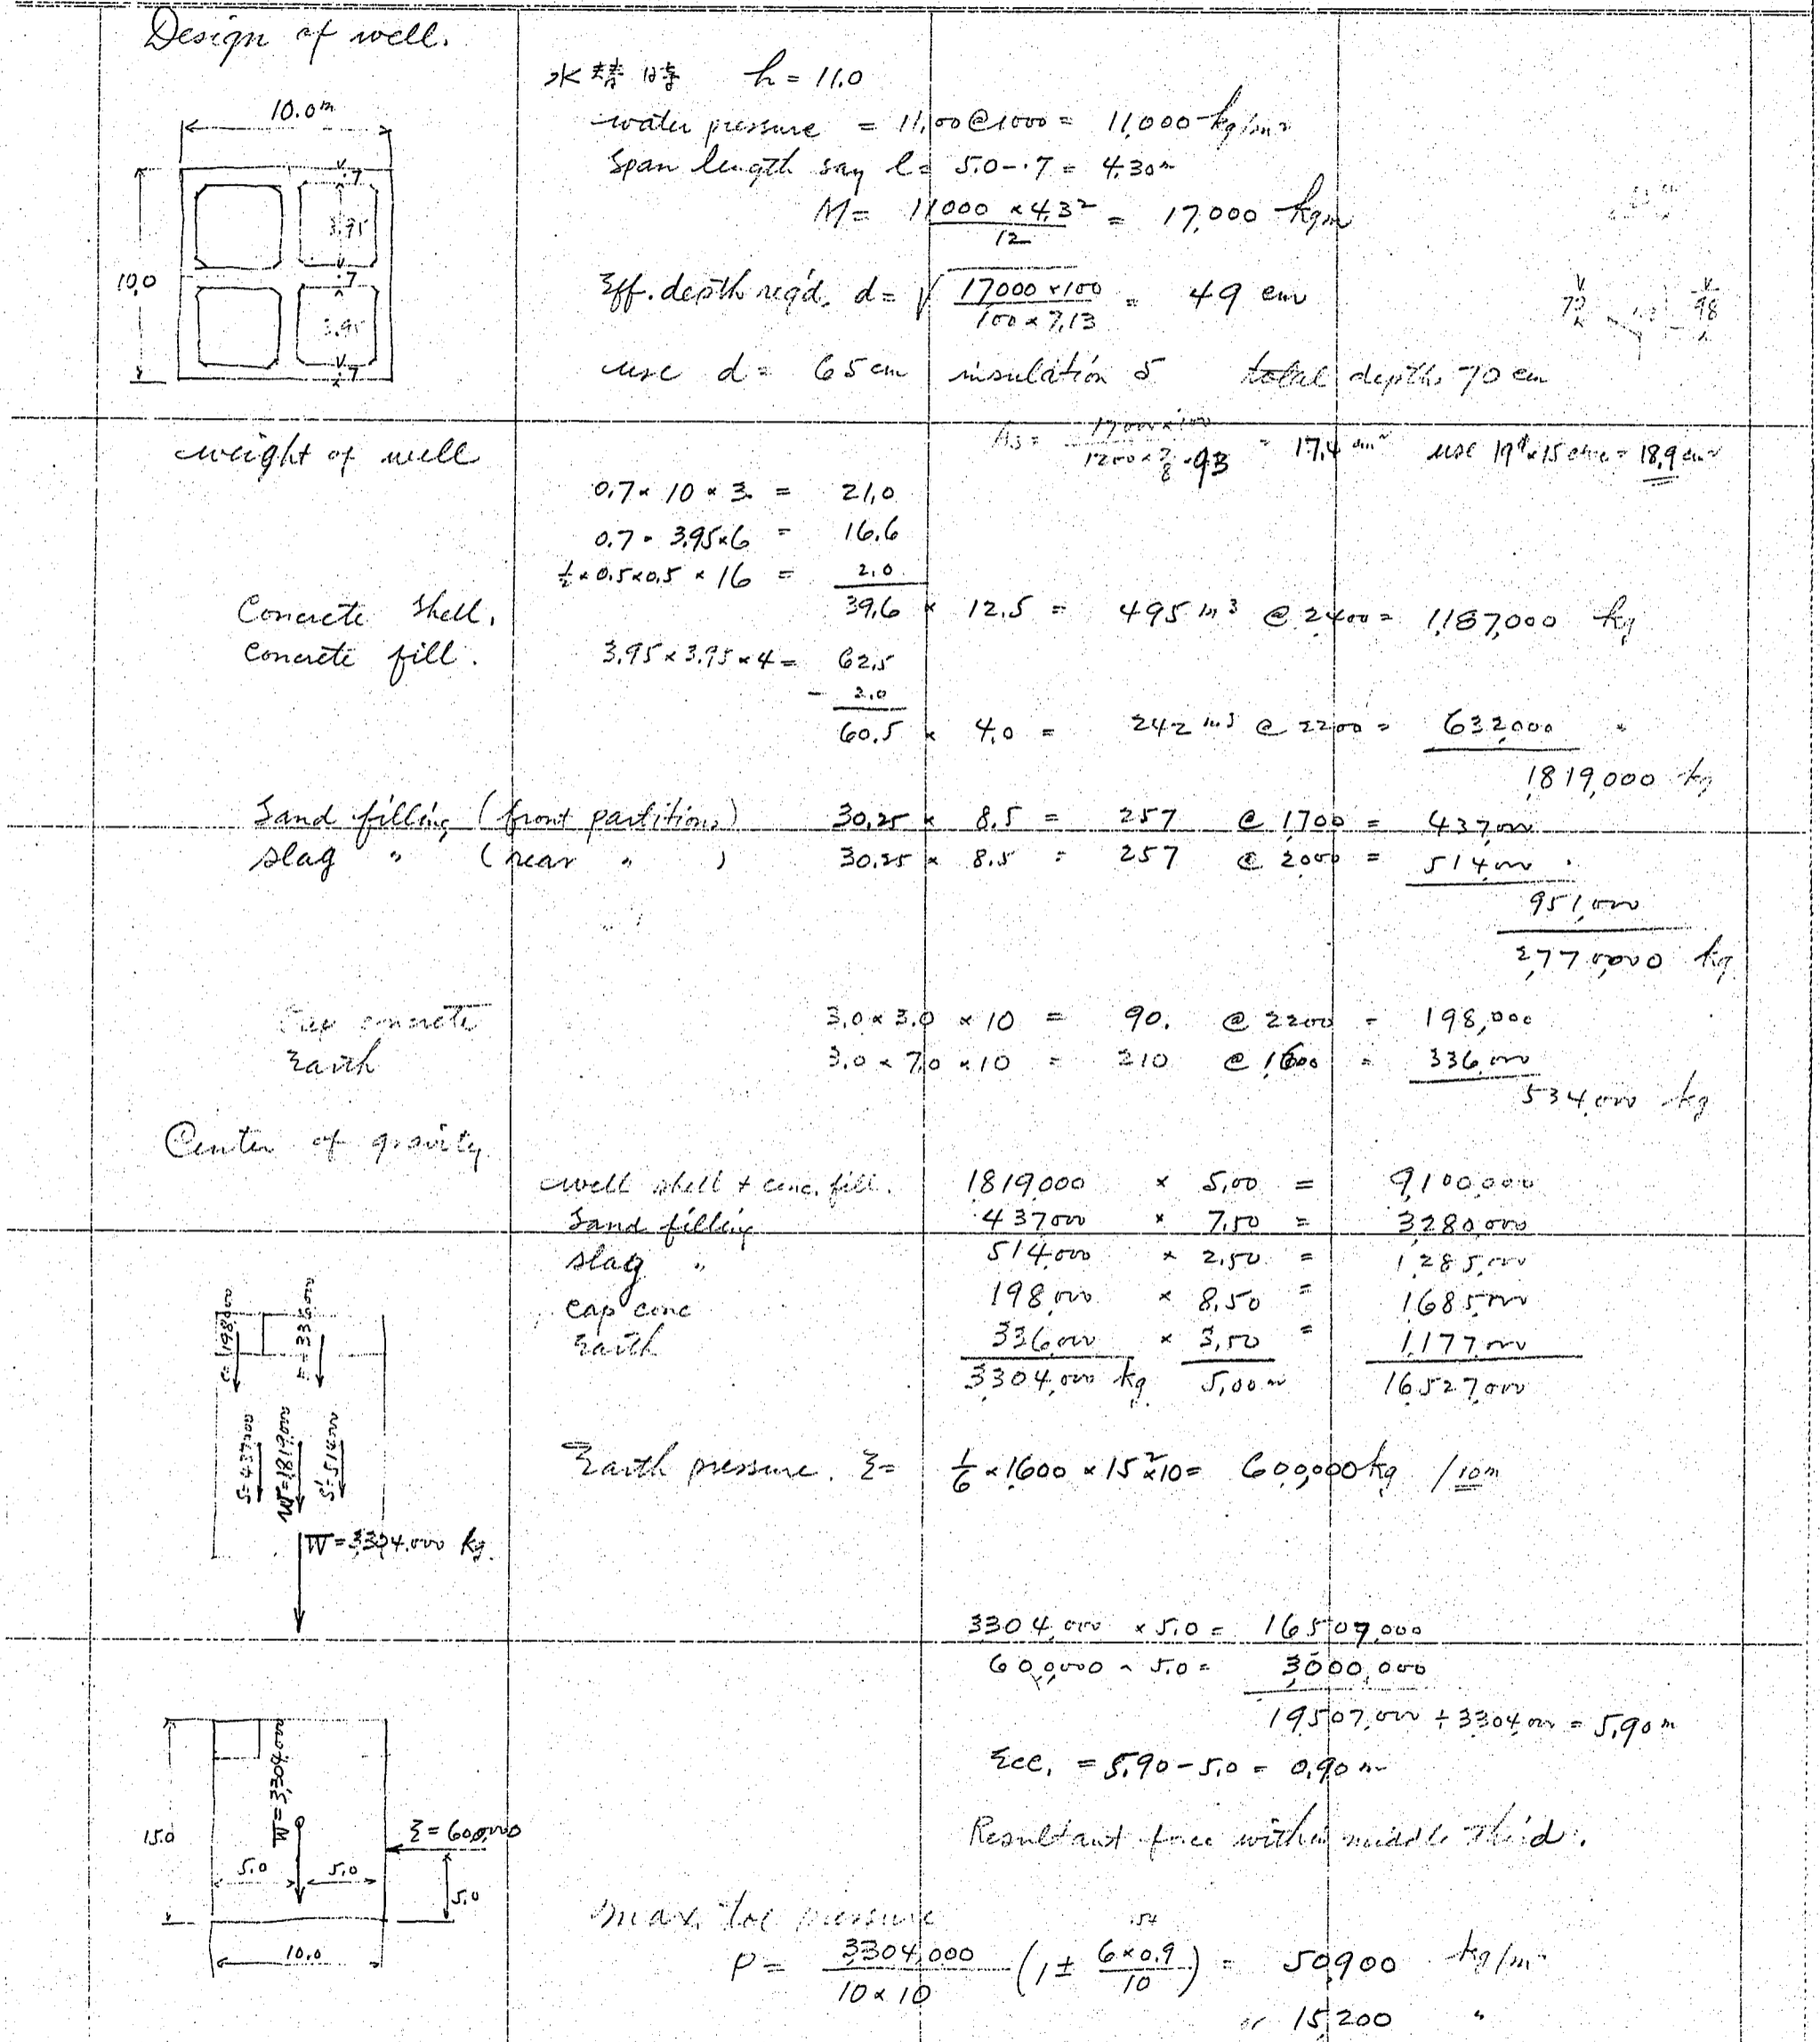 Design of well.
10.0m
.7
3.95
10.0
.7
3.95
.7
水替時 h = 11.0
water pressure = 11.00 @ 1000 = 11,000 kg/m²
Span length say l = 5.0 - .7 = 4.30m
M = 11000 × 4.3² / 12 = 17,000 kgm
Eff. depth req'd. d = √ 17000 × 100 / 100 × 7.13 = 49 cm
use d = 65 cm insulation 5 total depth. 70 cm
As = 17000 × 100 / 1200 × 7/8 × 93 = 17.4 cm² use 19φ × 15 = 18.9 cm²
weight of well
0.7 × 10 × 3. = 21.0
0.7 × 3.95 × 6 = 16.6
½ × 0.5 × 0.5 × 16 = 2.0
Concrete shell. 39.6 × 12.5 = 495 m³ @ 2400 = 1,187,000 kg
Concrete fill. 3.95 × 3.95 × 4 = 62.5
- 2.0
60.5 × 4.0 = 242 m³ @ 2200 = 632,000 "
1,819,000 kg
Sand filling (front partitions) 30.25 × 8.5 = 257 @ 1,700 = 437,000
slag " (rear " ) 30.25 × 8.5 = 257 @ 2000 = 514,000 "
951,000
2,770,000 kg
Cap concrete 3.0 × 3.0 × 10 = 90. @ 2200 = 198,000
Earth 3.0 × 7.0 × 10 = 210 @ 1,600 = 336,000
534,000 kg
Center of gravity
well shell + conc. fill. 1819,000 × 5.00 = 9,100,000
Sand filling 437,000 × 7.50 = 3,280,000
slag " 514,000 × 2.50 = 1,285,000
cap conc 198,000 × 8.50 = 1,685,000
Earth 336,000 × 3.50 = 1,177,000
3,304,000 kg 5.00m 16,527,000
C=198,000
E=336,000
S=437,000
W=1819,000
S'=514,000
W=3,304,000 kg.
Earth pressure. E = 1/6 × 1600 × 15² × 10 = 600,000 kg /10m
3304,000 × 5.0 = 16,507,000
600,000 × 5.0 = 3,000,000
19,507,000 ÷ 3304,000 = 5.90 m
Ecc. = 5.90 - 5.0 = 0.90 m
Resultant force within middle third.
15.0
W=3,304,000
E=600,000
5.0
5.0
5.0
10.0
max. toe pressure
.54
P = 3304,000 / 10 × 10 (1 ± 6 × 0.9 / 10) = 50,900 kg/m²
or 15,200 "